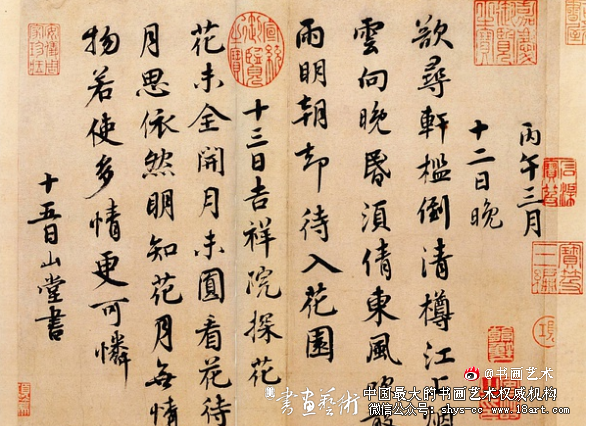 丙午三月
十二日晚
欲尋軒檻倒清樽江上烟
雲向晚昏須倩東風吹散
雨明朝却待入花園
十三日吉祥院探花
花未全開月未圓看花待
月思依然明知花月無情
物若使多情更可憐
十五日山堂書
嘉慶御覽之寶
宣統御覽之寶
@书画艺术
書画藝術
中国最大的书画艺术权威机构
微信公众号: shys-cc www.18art.com